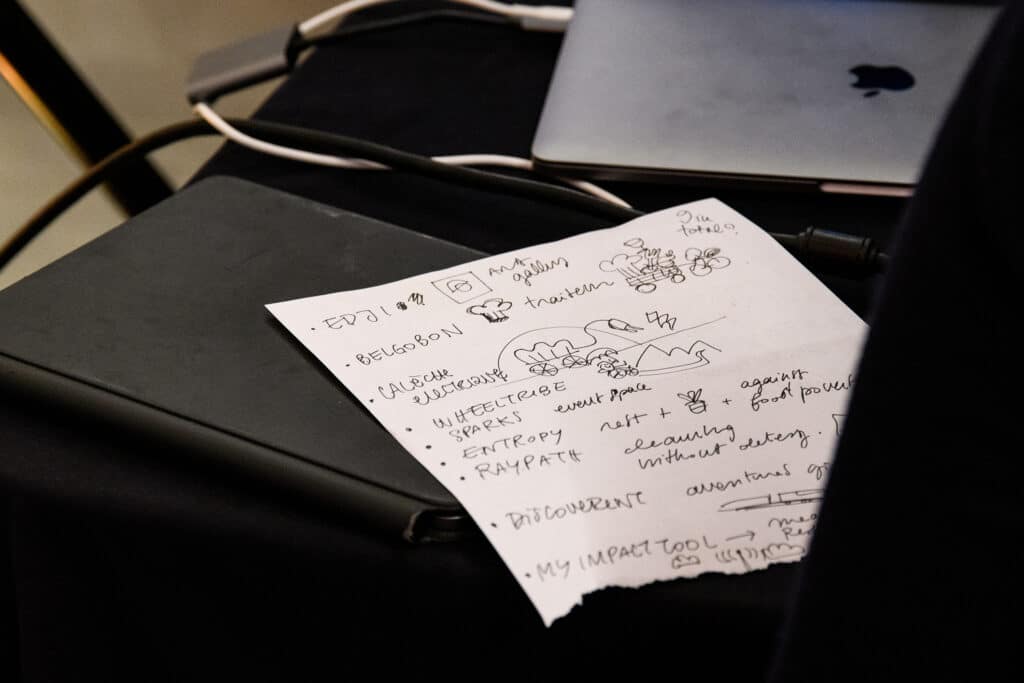 9 in total?
• EDJI art gallery
• BELGOBON traiteur
• CALÈCHE électrique
• WHEELTRIBE
• SPARKS event space
• ENTROPY rest + + against food povert
• RAYPATH cleaning without deterg.
• DISCOVERENT aventures
• MY IMPACT TOOL →